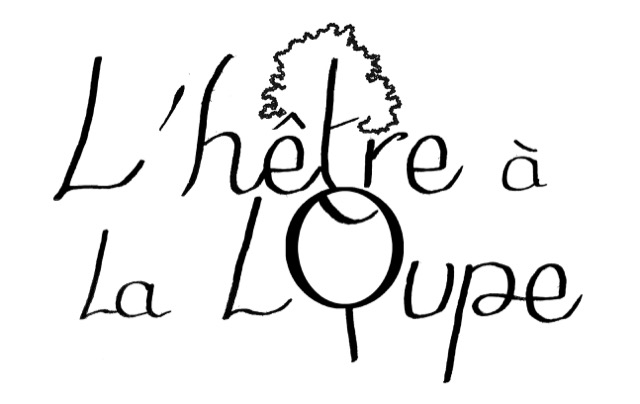 L'hêtre à
La Loupe